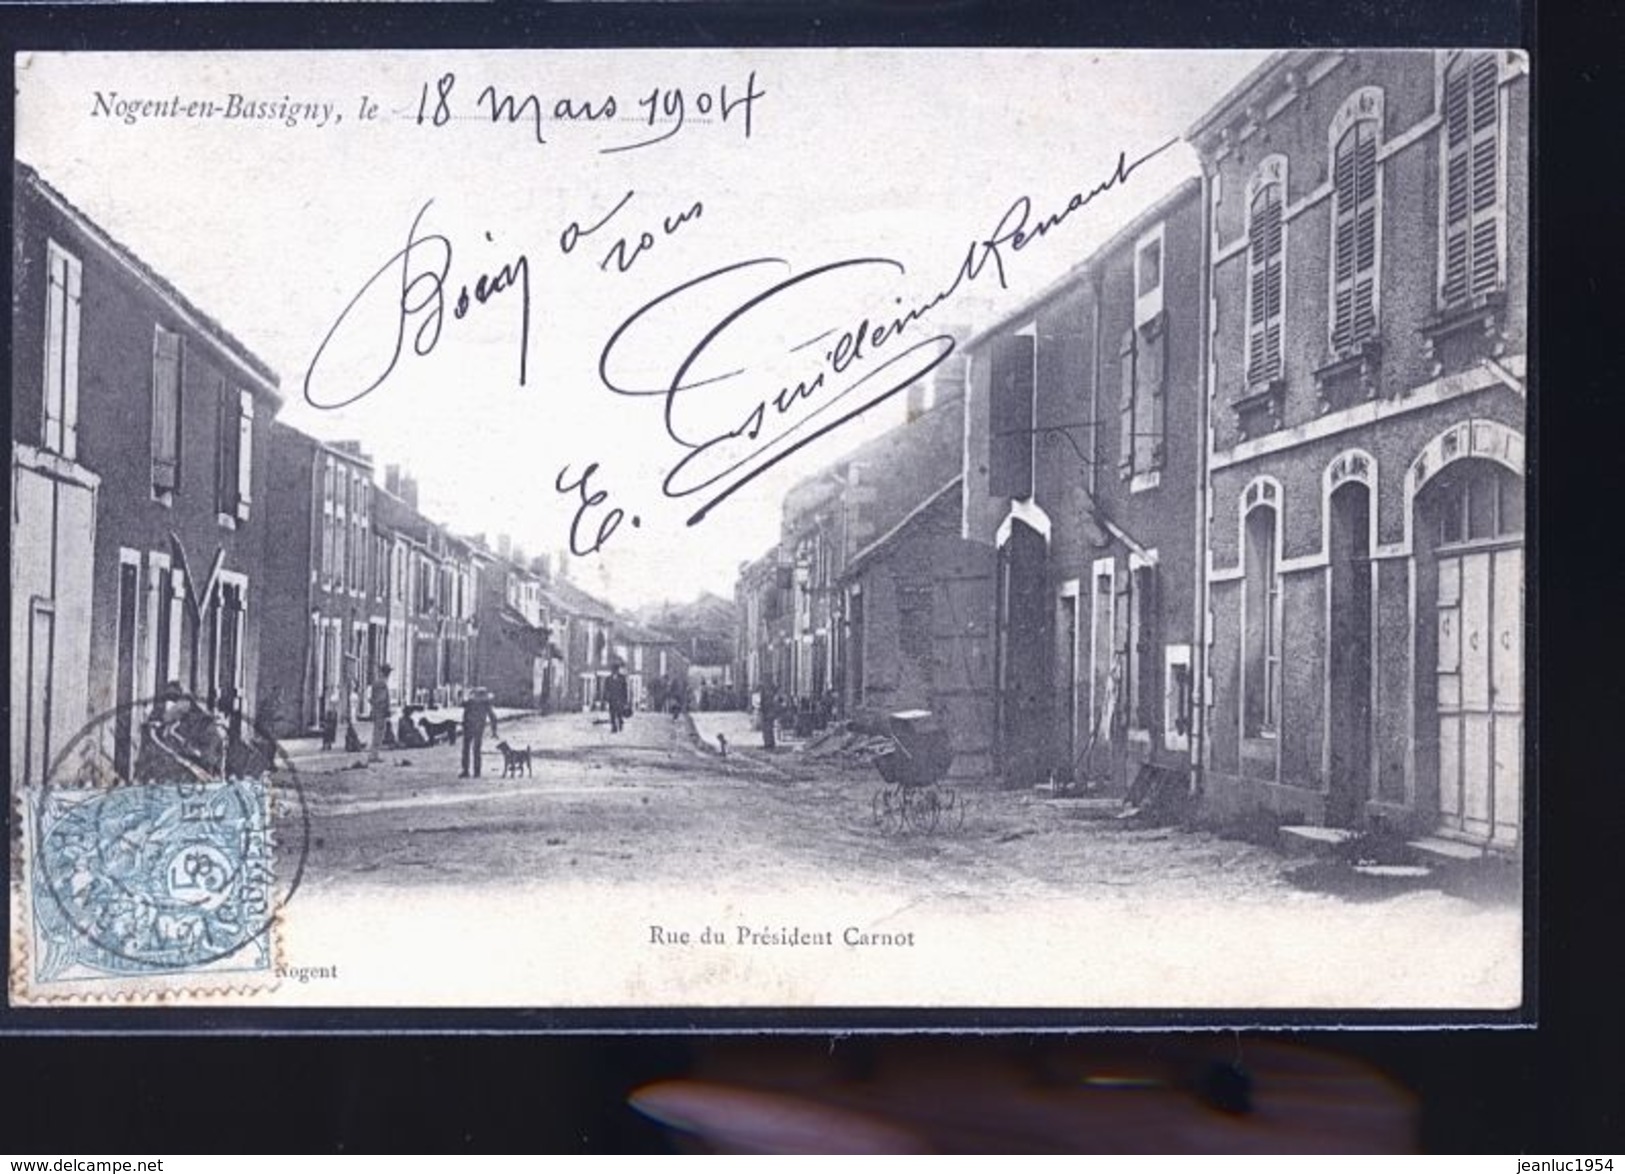 Nogent-en-Bassigny, le 18 Mars 1904
Bien à
vous
E. Guillemin Renaut
Rue du Président Carnot
Nogent
www.delcampe.net
jeanluc1954